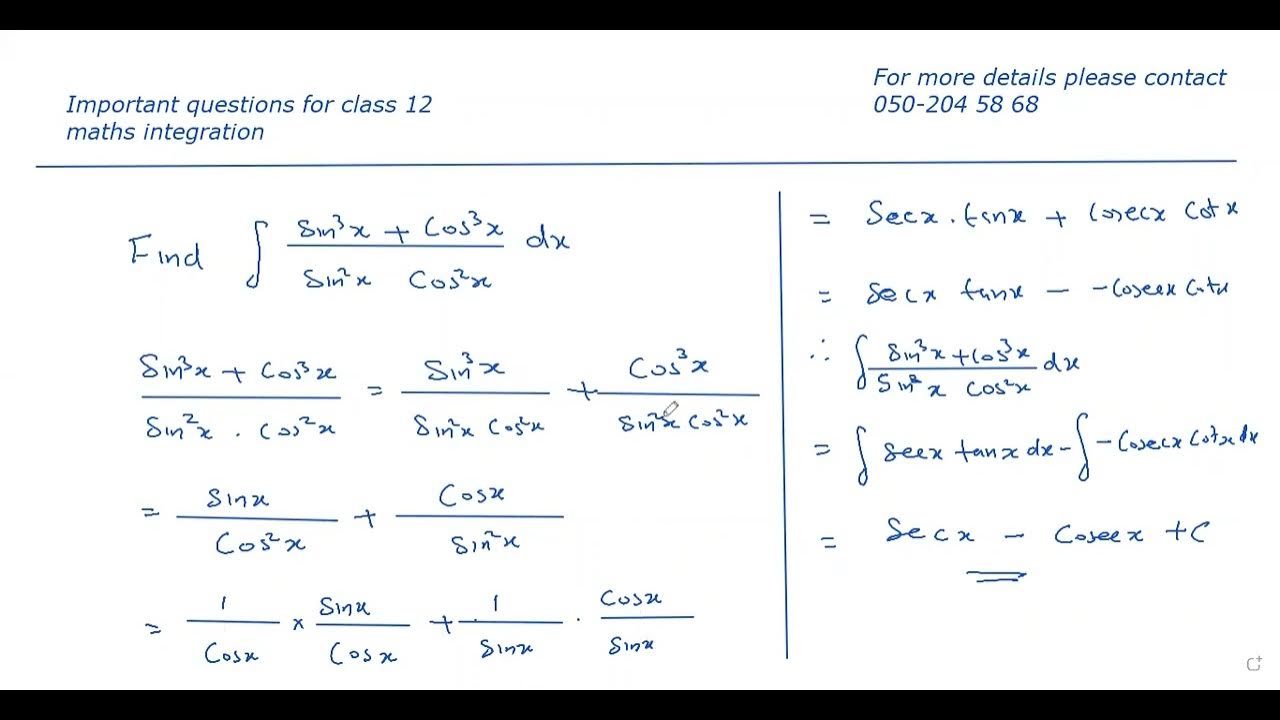 Important questions for class 12
maths integration
For more details please contact
050-204 58 68
Find ∫ (Sin³x + Cos³x)/(Sin²x Cos²x) dx
(Sin³x + Cos³x)/(Sin²x . Cos²x) = Sin³x/(Sin²x Cos²x) + Cos³x/(Sin²x Cos²x)
= Sinx/Cos²x + Cosx/Sin²x
= 1/Cosx × Sinx/Cosx + 1/Sinx . Cosx/Sinx
= Secx . tanx + Cosecx Cotx
= Secx tanx - -Cosecx Cotx
∴ ∫ (Sin³x + Cos³x)/(Sin²x Cos²x) dx
= ∫ Secx tanx dx - ∫ -Cosecx Cotx dx
= Secx - Cosecx + C